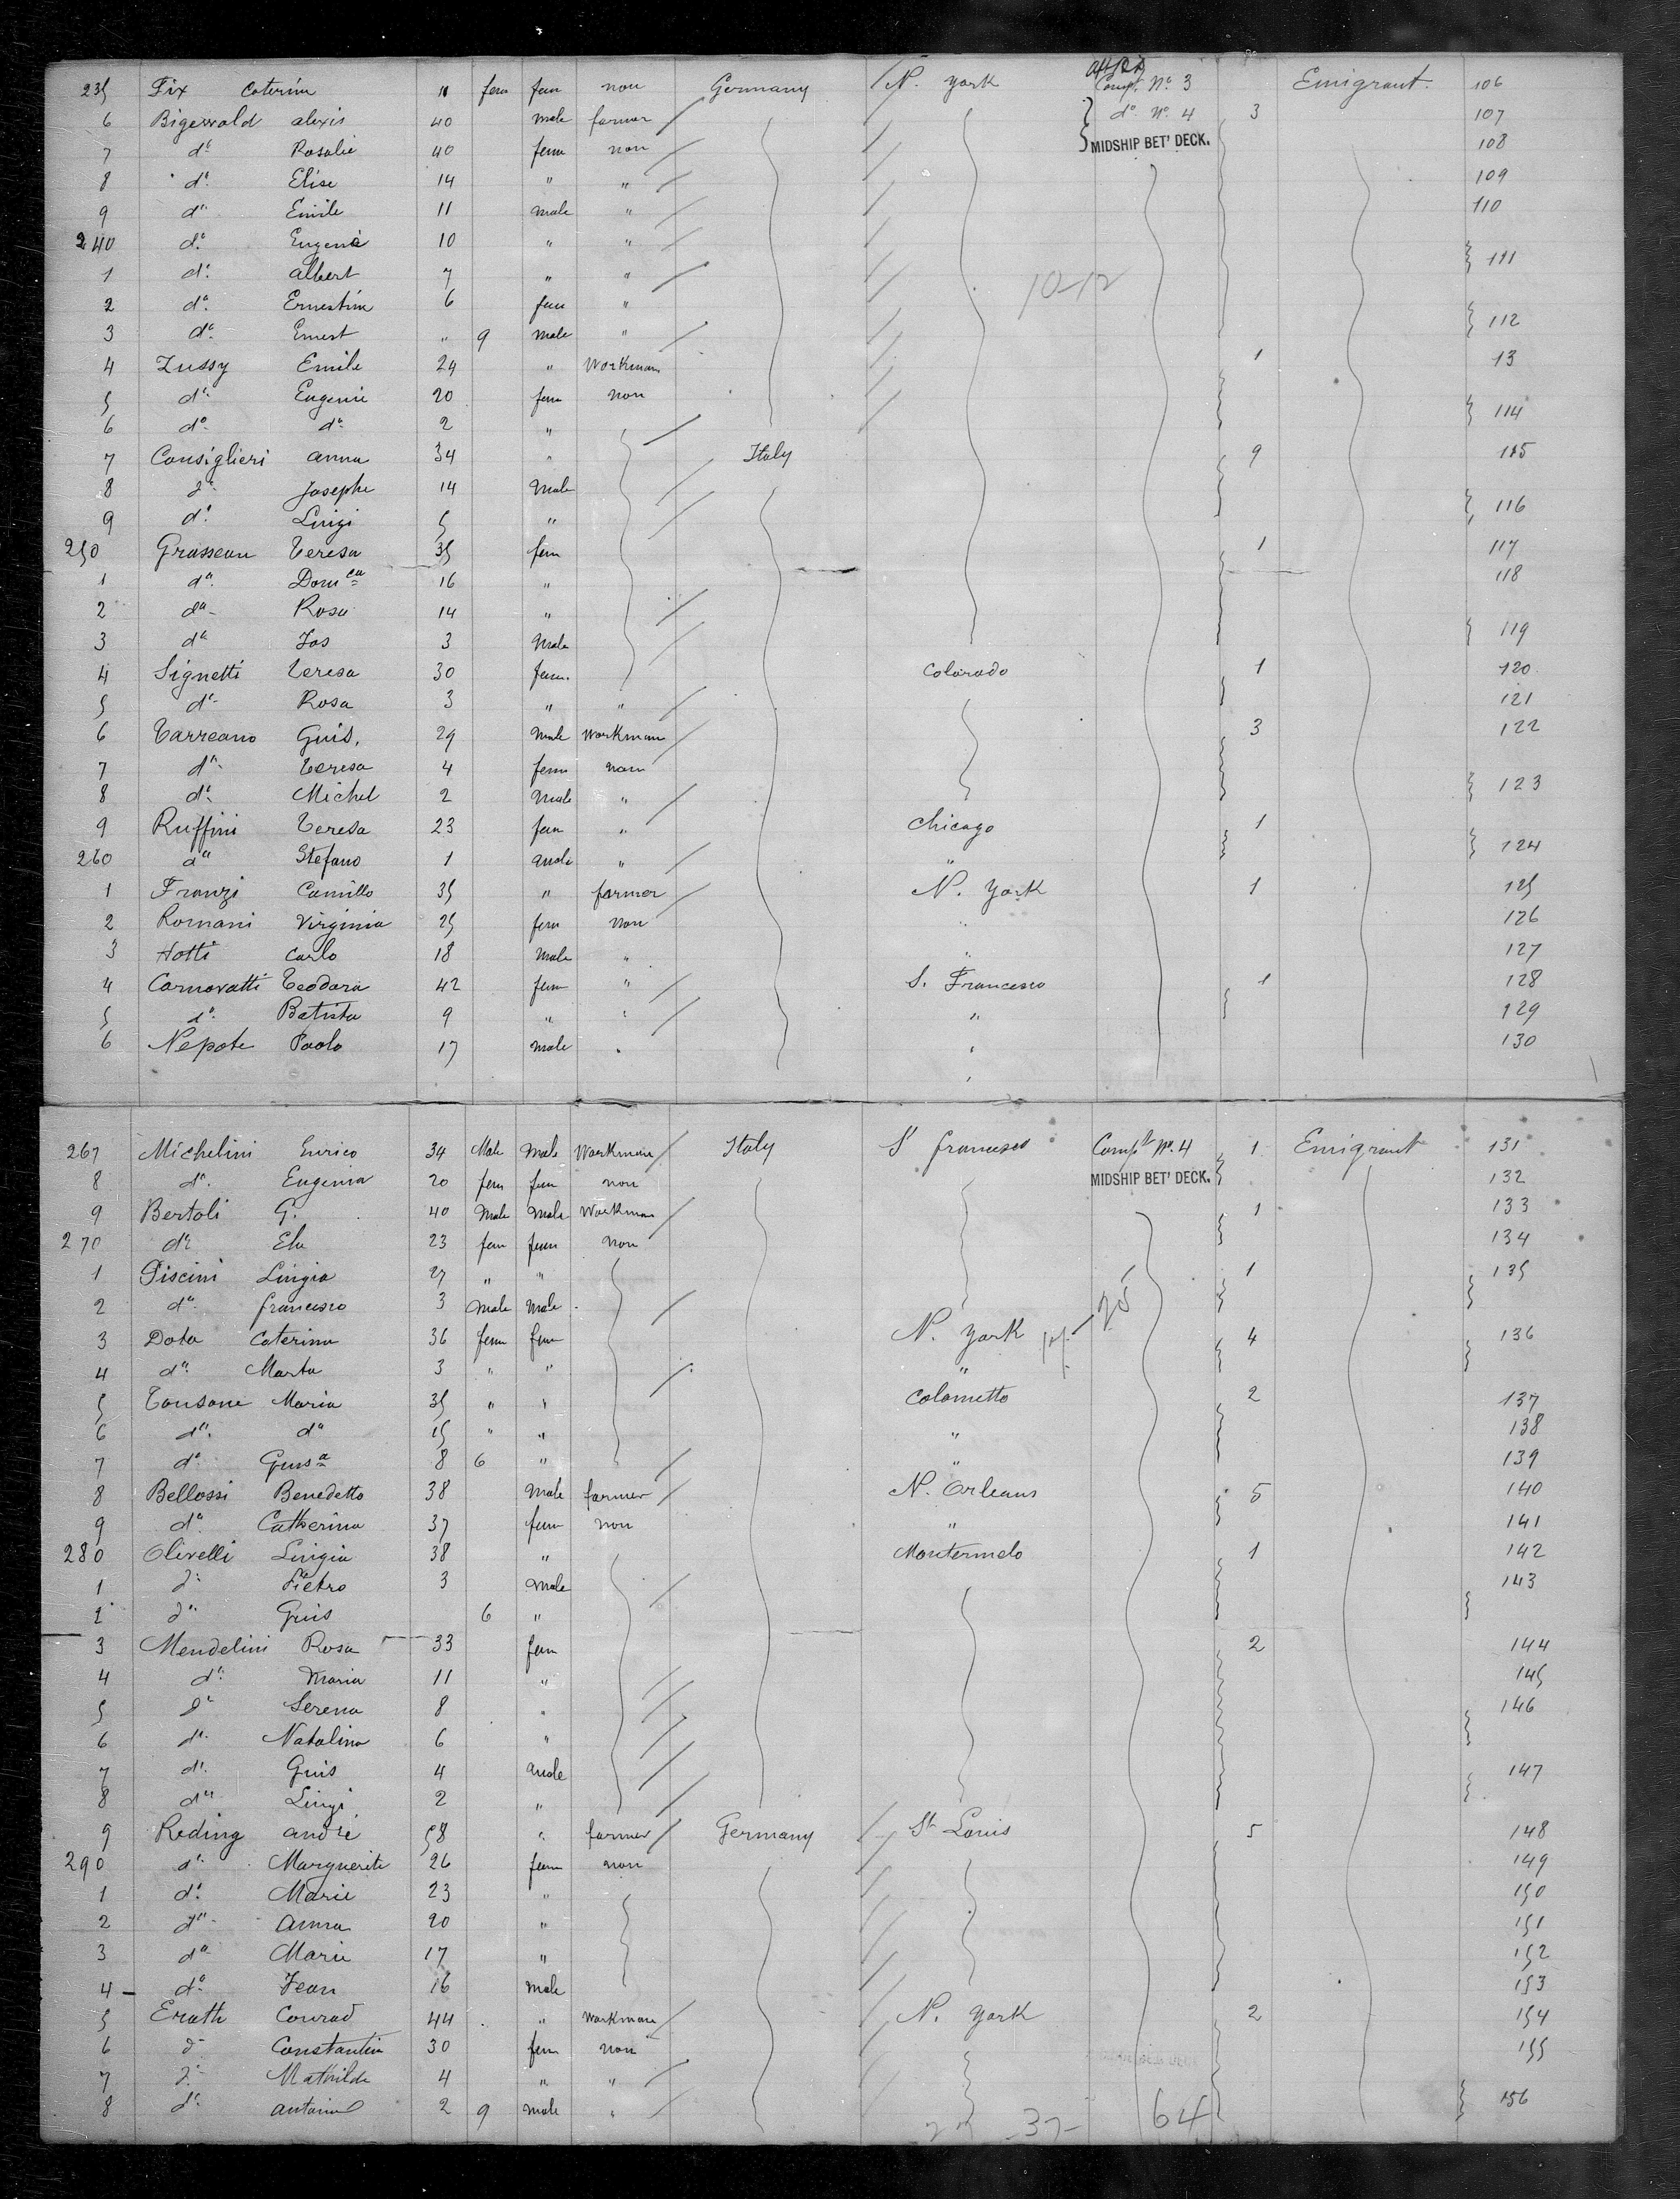 235 Fix Caterina 10 fem fem non Germany N. York Compt. No. 3 Emigrant. 106
6 Bigerwald alexis 40 male farmer do No. 4 3 107
7 do Rosalie 40 fem non MIDSHIP BET' DECK. 108
8 do Elise 14 " " 109
9 do Emile 11 male " 110
240 do Eugenie 10 " "
1 do albert 7 " " 111
2 do Ernestin 6 fem " 10-12
3 do Ernest " 9 male " 112
4 Zussy Emile 24 " Workman 1 13
5 do Eugenie 20 fem non
6 do do 2 " 114
7 Consiglieri anna 34 " Italy 9 115
8 do Josephe 14 Male
9 do Luigi 5 " 116
250 Grasseau Teresa 35 fem 1 117
1 do Domca 16 " 118
2 do Rosa 14 "
3 do Jos 3 Male 119
4 Signetti Teresa 30 fem. Colorado 1 120
5 do Rosa 3 " " 121
6 Tarreano Guis. 29 male Workman 3 122
7 do Teresa 4 fem non
8 do Michel 2 Male " 123
9 Ruffini Teresa 23 fem " Chicago 1
260 do Stefano 1 male " " 124
1 Franzi Camillo 35 " farmer N. York 1 125
2 Romani Virginia 25 fem non " 126
3 Hotti Carlo 18 Male " " 127
4 Carnovatti Teodora 42 fem " S. Francesco 1 128
5 do Batista 9 " " " 129
6 Nepote Paolo 17 male " " 130
267 Michelini Enrico 34 Male Male Workman Italy St francesco Compt No. 4 1 Emigrant 131
8 do Eugenia 20 fem fem non MIDSHIP BET' DECK. 132
9 Bertoli G. 40 Male Male Workman 1 133
270 do Ela 23 fem fem non 134
1 Piscini Luigia 27 " " 1 135
2 do francesco 3 Male Male
3 Dota Caterina 36 fem fem N. York 4 136
4 do Marta 3 " " "
5 Tonsone Maria 35 " " Colometto 2 137
6 do do 15 " " " 138
7 do Guisa 8 6 " " 139
8 Bellossi Benedetto 38 Male farmer N. Orleans 5 140
9 do Catherina 37 fem non " 141
280 Olivelli Luigia 38 " Montermelo 1 142
1 do Pietro 3 Male 143
2 do Guis 6 "
3 Mendelini Rosa 33 fem 2 144
4 do Maria 11 " 145
5 do Serena 8 " 146
6 do Natalina 6 "
7 do Guis 4 Male 147
8 do Luigi 2 "
9 Reding andré 58 " farmer Germany St Louis 5 148
290 do Marguerite 26 fem non 149
1 do Marie 23 " 150
2 do anna 20 " 151
3 do Marie 17 " 152
4 do Jean 16 male 153
5 Erath Conrad 44 " Workman N. York 2 154
6 do Constantin 30 fem non 155
7 do Mathilde 4 " "
8 do antoine 2 9 male " 156
37- 64